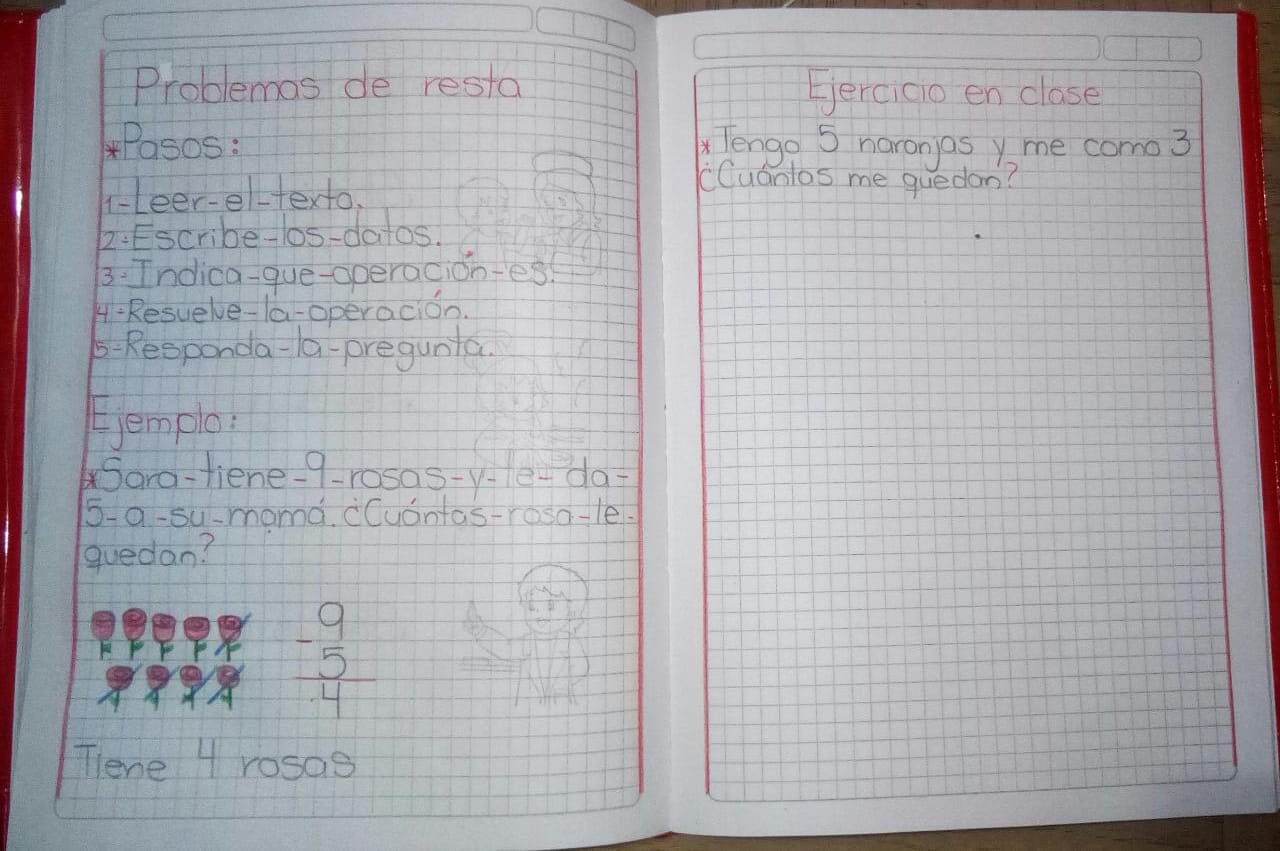 Problemas de resta
*Pasos:
1-Leer-el-texto.
2-Escribe-los-datos.
3-Indica-que-operación-es.
4-Resuelve-la-operación.
5-Responda-la-pregunta.
Ejemplo:
*Sara-tiene-9-rosas-y-le-da-
5-a-su-mamá. ¿Cuántas-rosa-le-
quedan?
9
- 5
4
Tiene 4 rosas
Ejercicio en clase
*Tengo 5 naranjas y me como 3
¿Cuántas me quedan?